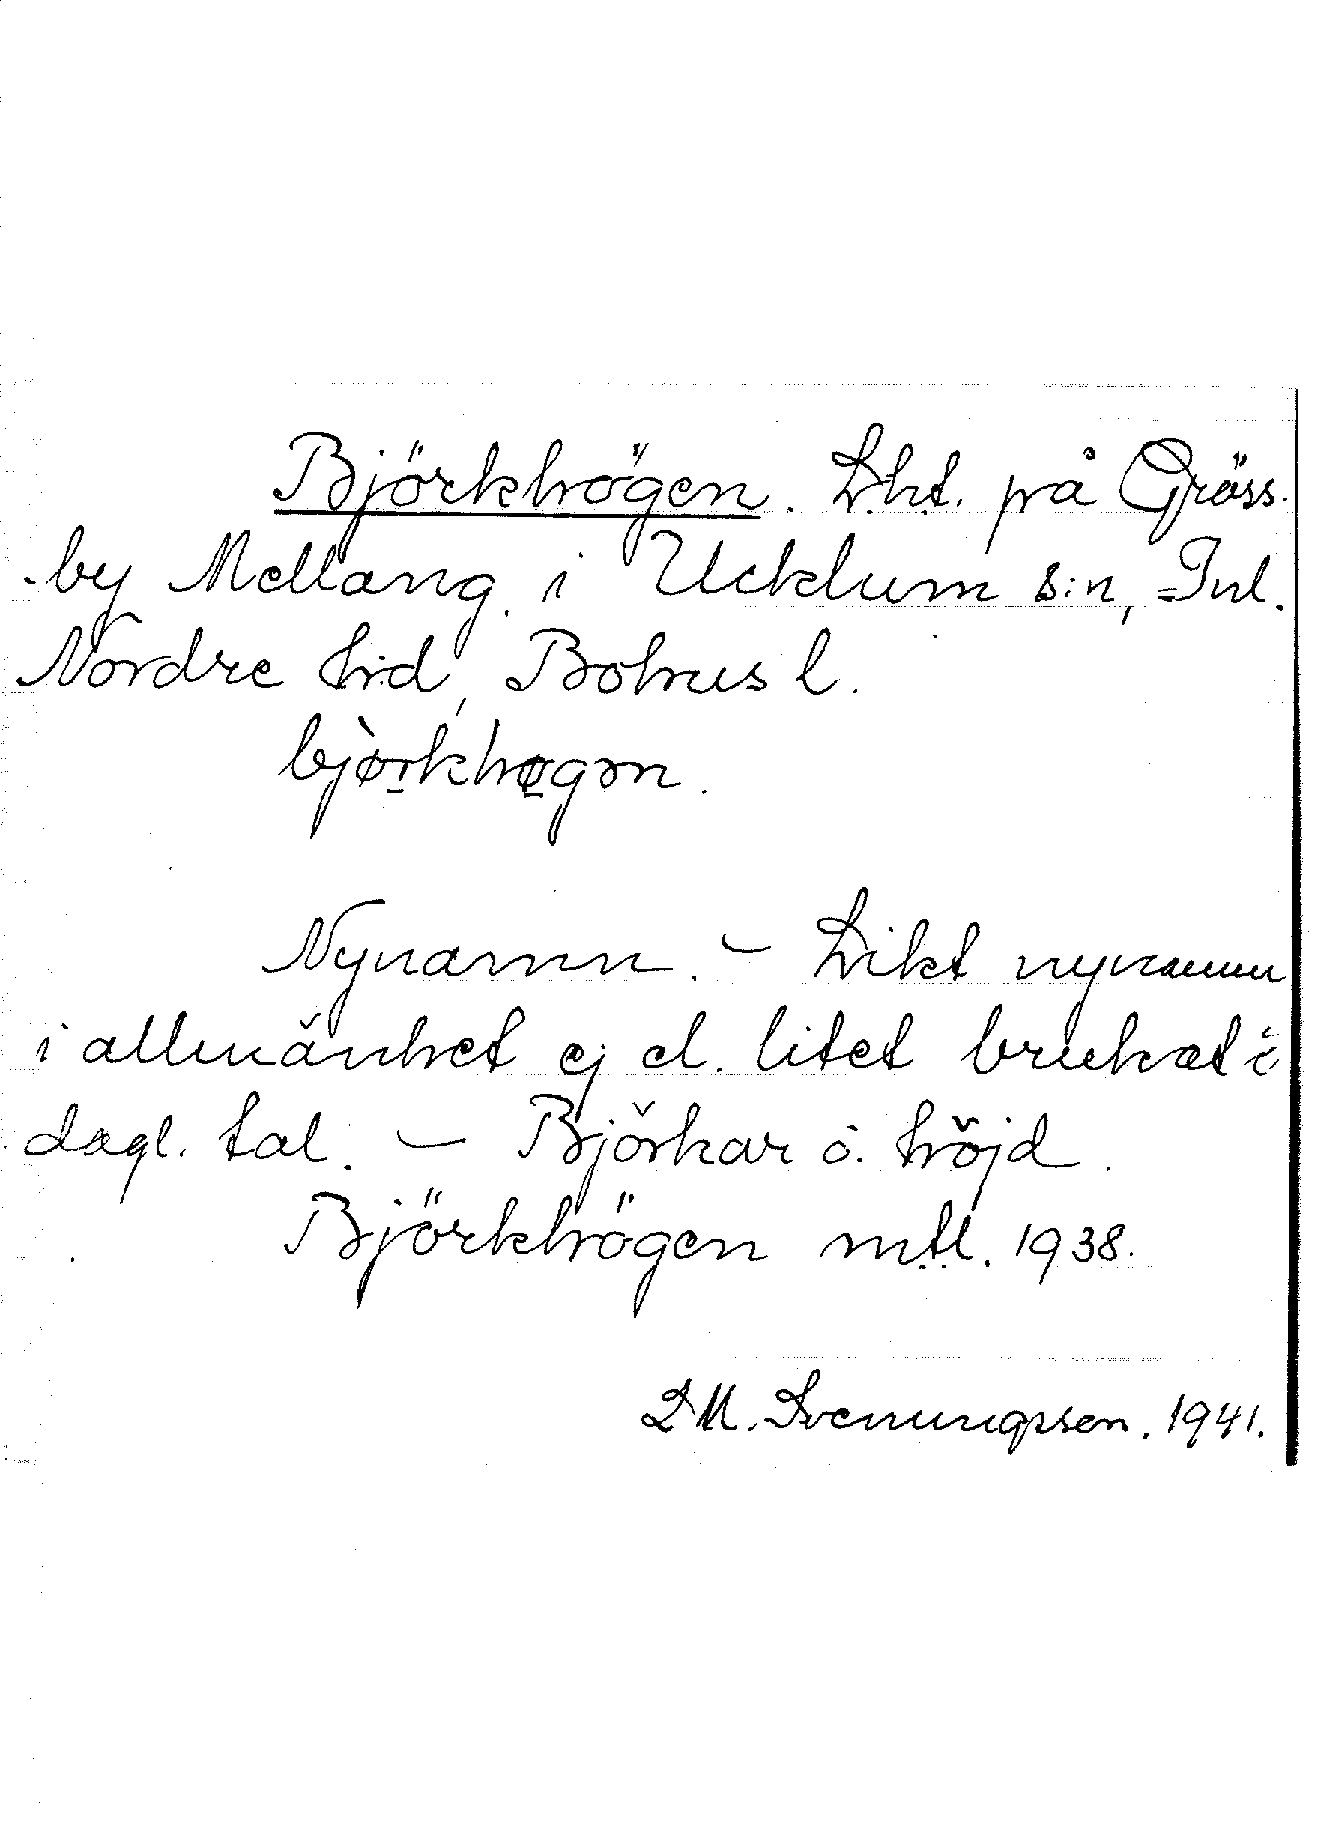 Björkhögen. Lht. på Gräss-
by Mellang. i Ucklum s:n, Inl.
Nordre hd, Bohus l.
bjòrkhøgən.
Nynamn. – Likt nynamn
i allmänhet ej el. litet brukat i
dagl. tal. – Björkar o. höjd.
Björkhögen mtl. 1938.
D M. Svenungsson. 1941.